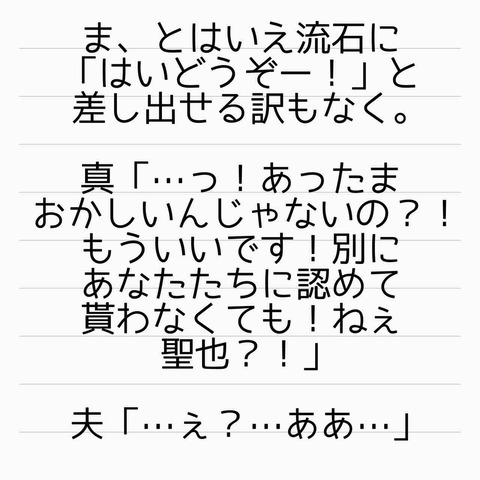 ま、とはいえ流石に
「はいどうぞー！」と
差し出せる訳もなく。
真「…っ！あったま
おかしいんじゃないの？！
もういいです！別に
あなたたちに認めて
貰わなくても！ねぇ
聖也？！」
夫「…ぇ？…ああ…」